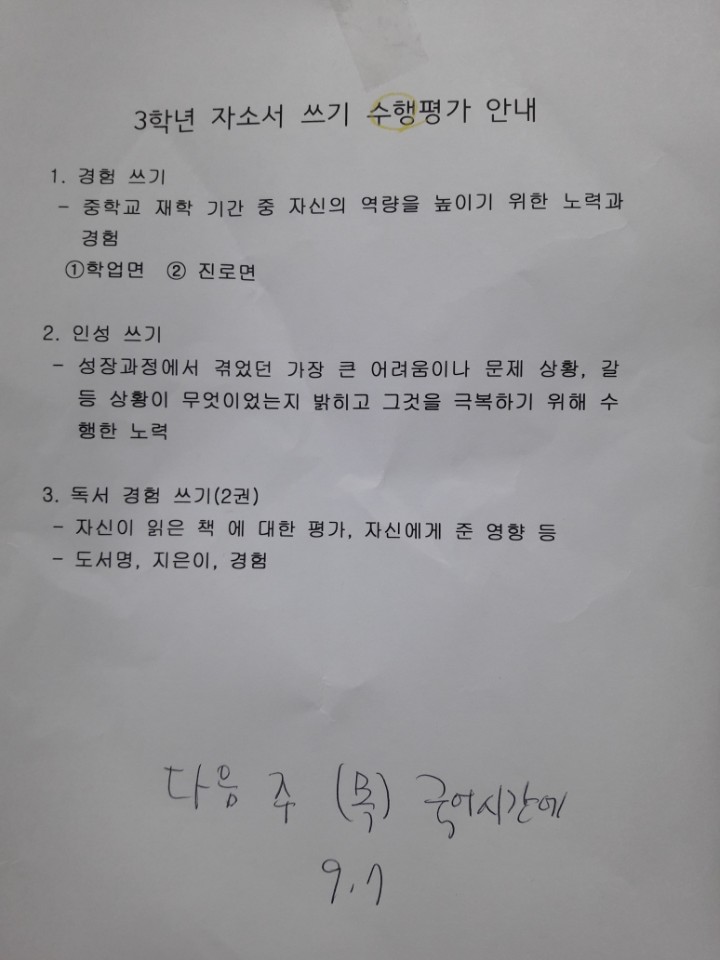 3학년 자소서 쓰기 수행평가 안내
1. 경험 쓰기
- 중학교 재학 기간 중 자신의 역량을 높이기 위한 노력과
경험
①학업면 ② 진로면
2. 인성 쓰기
- 성장과정에서 겪었던 가장 큰 어려움이나 문제 상황, 갈
등 상황이 무엇이었는지 밝히고 그것을 극복하기 위해 수
행한 노력
3. 독서 경험 쓰기(2권)
- 자신이 읽은 책 에 대한 평가, 자신에게 준 영향 등
- 도서명, 지은이, 경험
다음 주 (목) 국어시간에
9.1